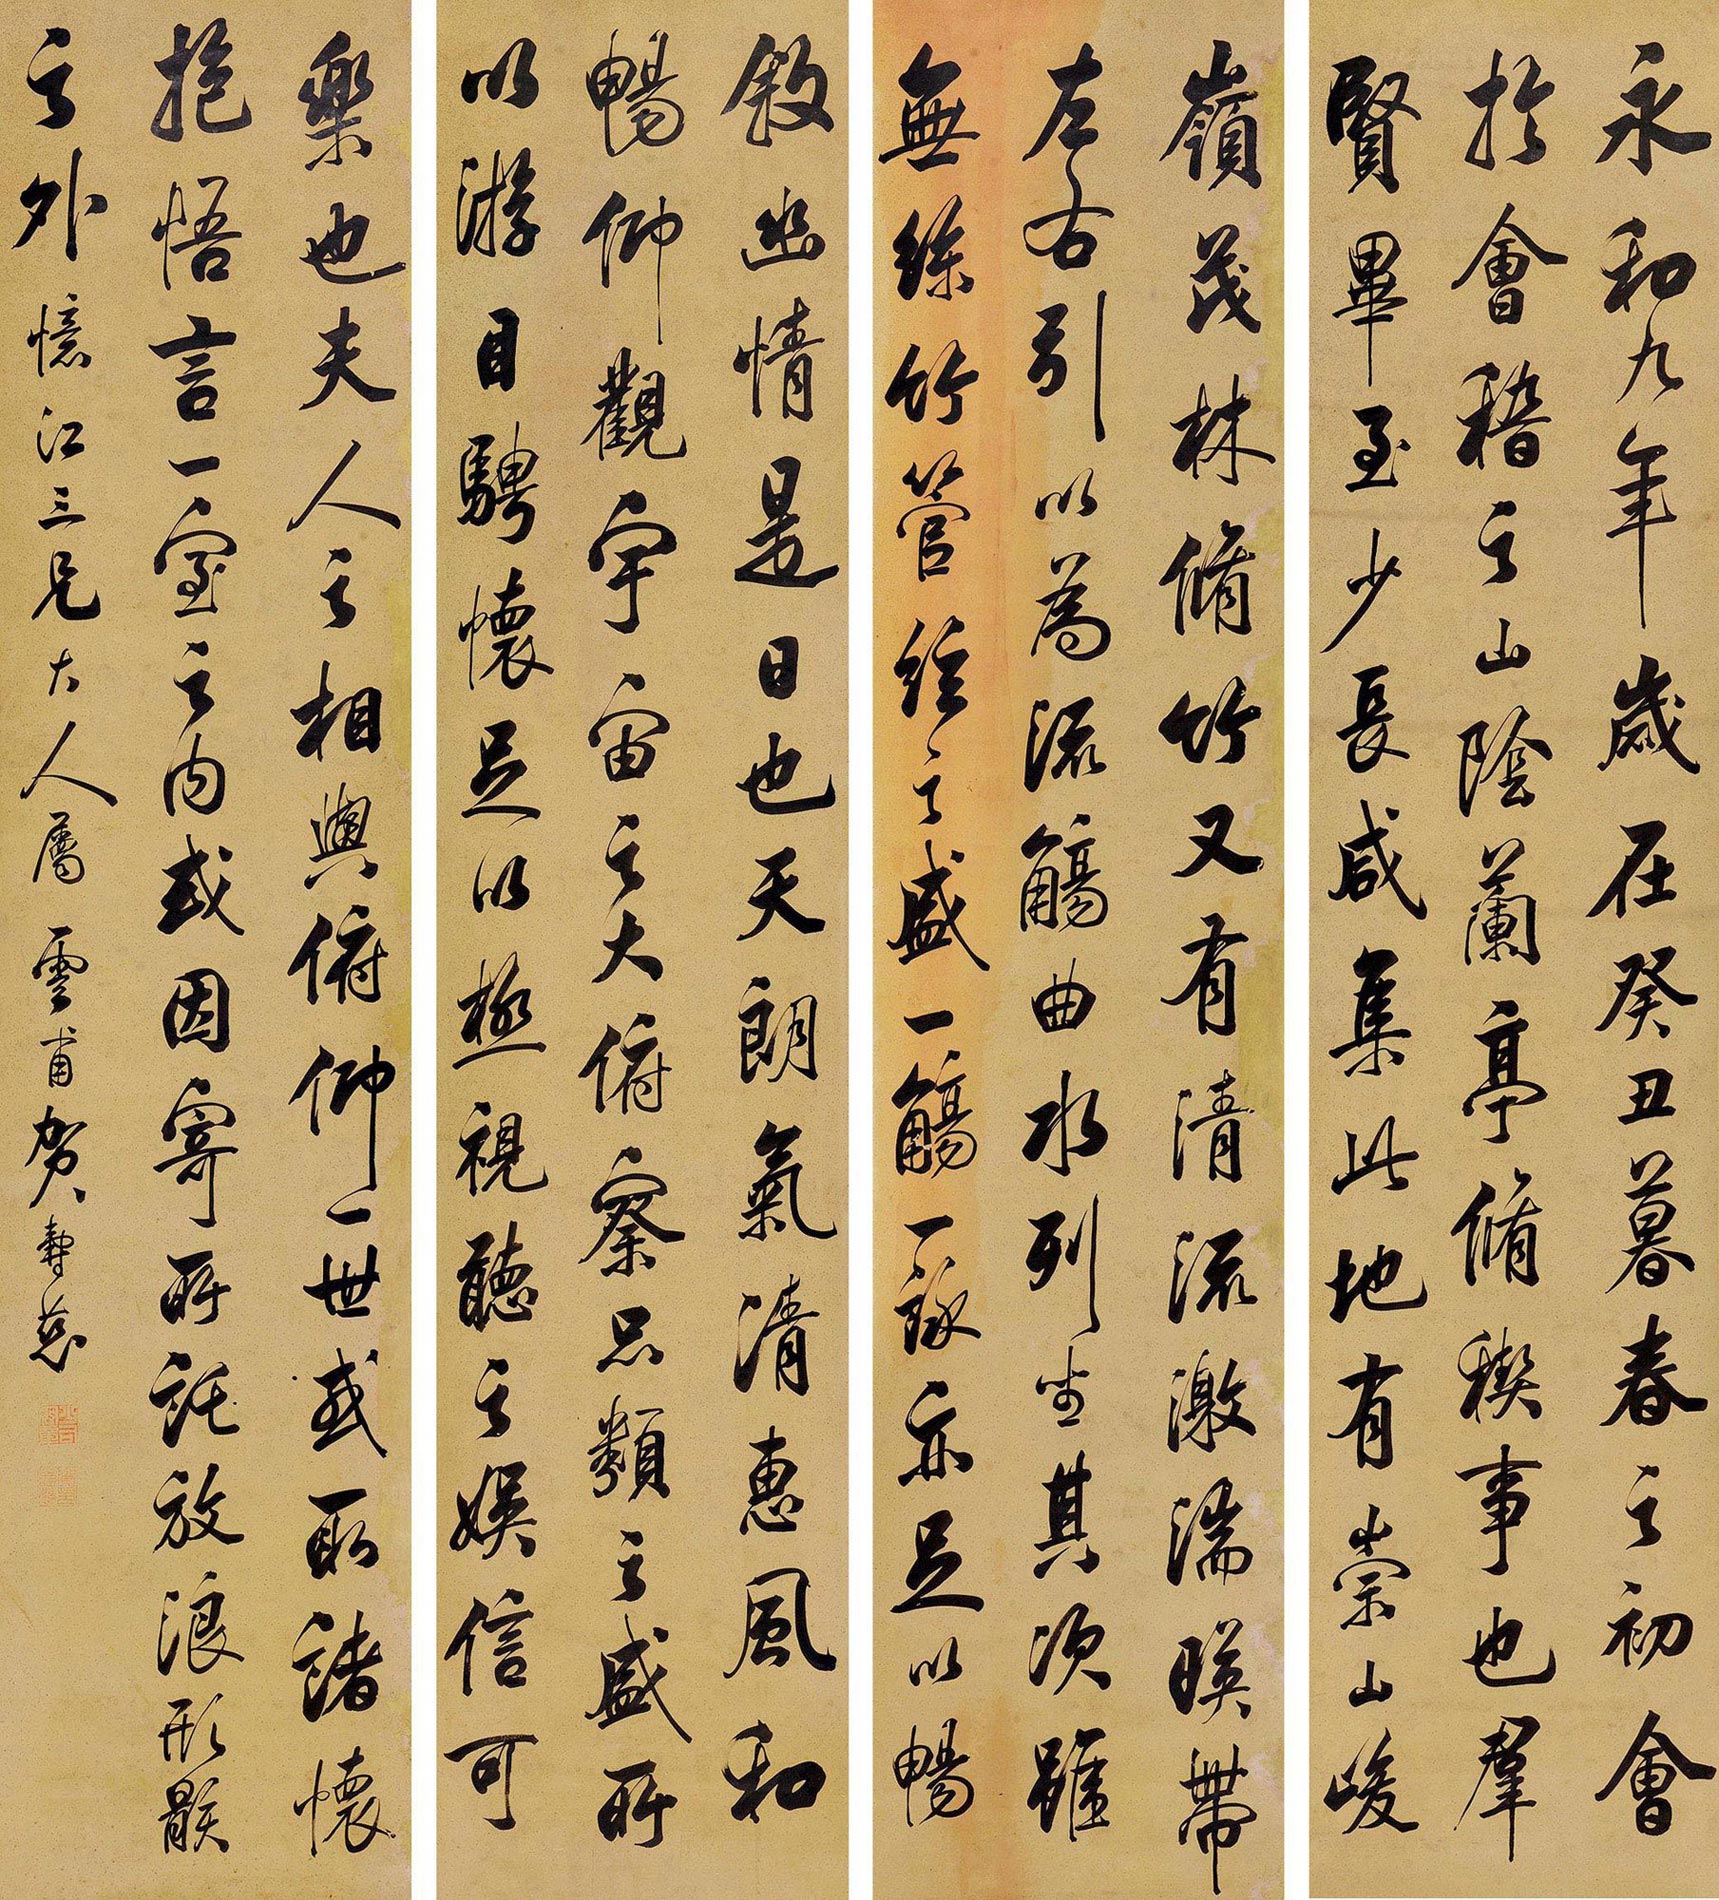 永和九年歲在癸丑暮春之初會
於會稽之山陰蘭亭脩稧事也羣
賢畢至少長咸集此地有崇山峻
嶺茂林脩竹又有清流激湍暎帶
左右引以為流觴曲水列坐其次雖
無絲竹管絃之盛一觴一詠亦足以暢
敘幽情是日也天朗氣清惠風和
暢仰觀宇宙之大俯察品類之盛所
以游目騁懷足以極視聽之娛信可
樂也夫人之相與俯仰一世或取諸懷
抱悟言一室之內或因寄所託放浪形骸
之外 憶江三兄大人屬 雲甫賀壽慈